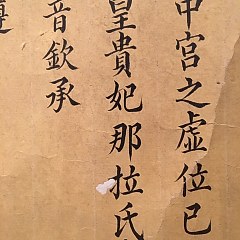 中宮之虛位已
皇貴妃那拉氏
音欽承